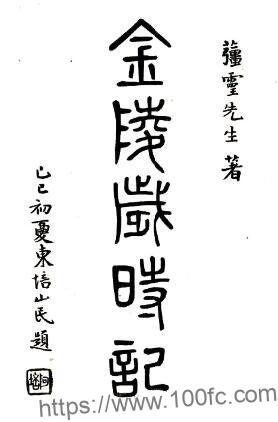 蘁靈先生著
金陵歲時記
己巳初夏東培山民題
https://www.100fc.com